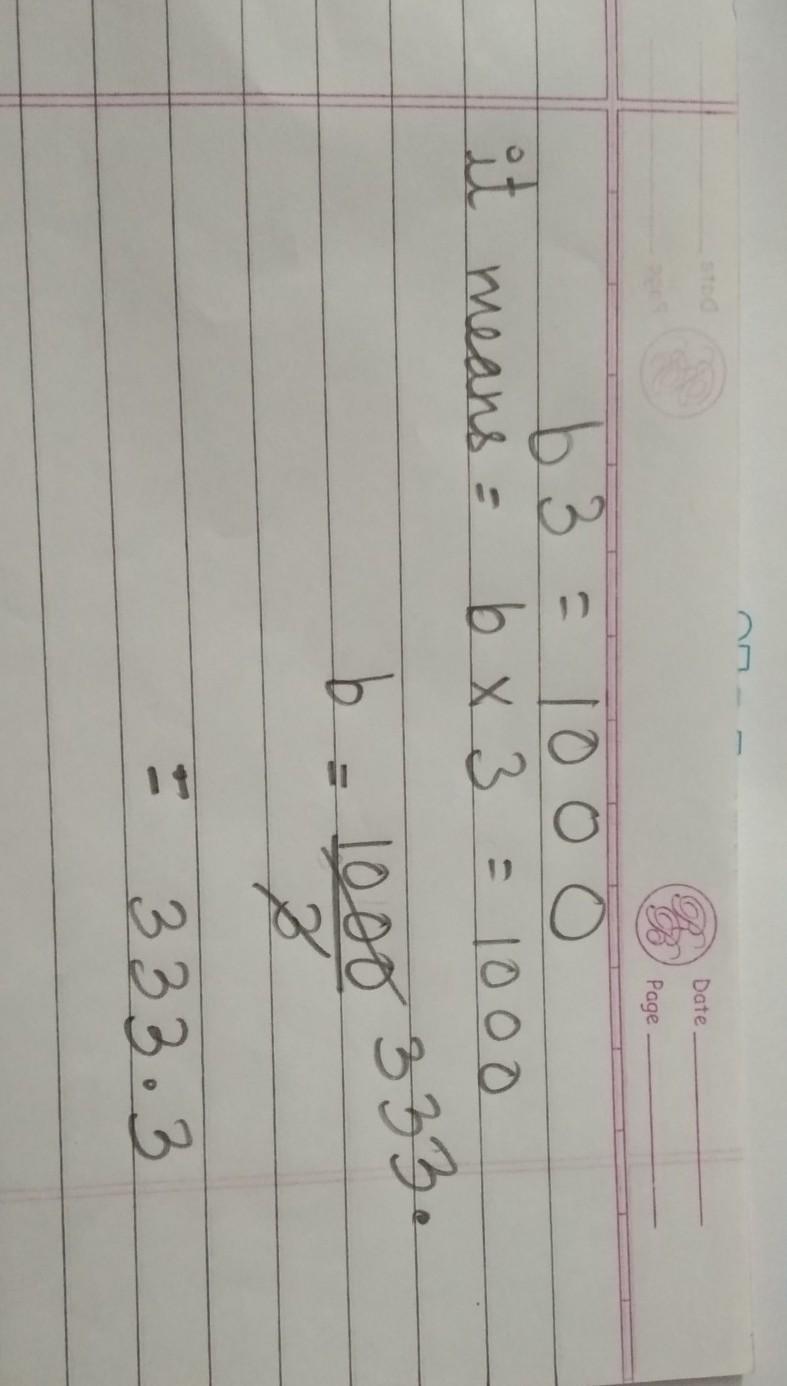 Date
Page
b3 = 1000
it means = b x 3 = 1000
b = 1000 333.
3
= 333.3